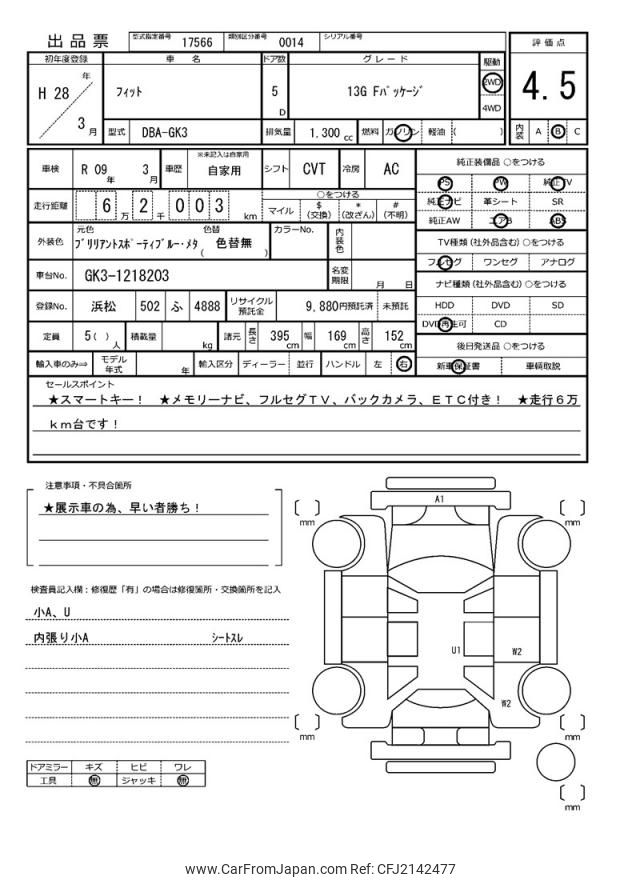 出品票 型式指定番号 17566 類別区分番号 0014 シリアル番号
評価点
初年度登録 車名 ドア数 グレード 駆動
H 28 年 フィット 5 D 13G Fパッケージ 2WD 4.5
3 月 4WD
型式 DBA-GK3 排気量 1,300 cc 燃料 ガソリン 軽油 ( ) 内装 A B C
車検 R 09 年 3 月 車歴 ※未記入は自家用 自家用 シフト CVT 冷房 AC
純正装備品 ○をつける
PS PW 純正TV
純正ナビ 革シート SR
純正AW エアB ABS
走行距離 6 万 2 千 0 0 3 km
○をつける
マイル $(交換) *(改ざん) #(不明)
外装色 元色 ブリリアントスポーティブルー・メタ 色替 ( 色替無 ) カラーNo. 内装色
TV種類 (社外品含む) ○をつける
フルセグ ワンセグ アナログ
車台No. GK3-1218203 名変期限 月 日
ナビ種類 (社外品含む) ○をつける
HDD DVD SD
DVD再生可 CD
登録No. 浜松 502 ふ 4888 リサイクル預託金 9,880円預託済 未預託
定員 5( ) 人 積載量 kg 諸元 長さ 395 cm 幅 169 cm 高さ 152 cm
後日発送品 ○をつける
新車保証書 車輌取説
輸入車のみ⇒ モデル年式 年 輸入区分 ディーラー 並行 ハンドル 左 右
セールスポイント
★スマートキー！ ★メモリーナビ、フルセグＴＶ、バックカメラ、ＥＴＣ付き！ ★走行６万
ｋｍ台です！
注意事項・不具合箇所
★展示車の為、早い者勝ち！
検査員記入欄：修復歴「有」の場合は修復箇所・交換箇所を記入
小A、U
内張り小A シートスレ
A1
U1
W2
W2
mm
mm
mm
mm
mm
ドアミラー キズ ヒビ ワレ
工具 無 ジャッキ 無
www.CarFromJapan.com Ref: CFJ2142477